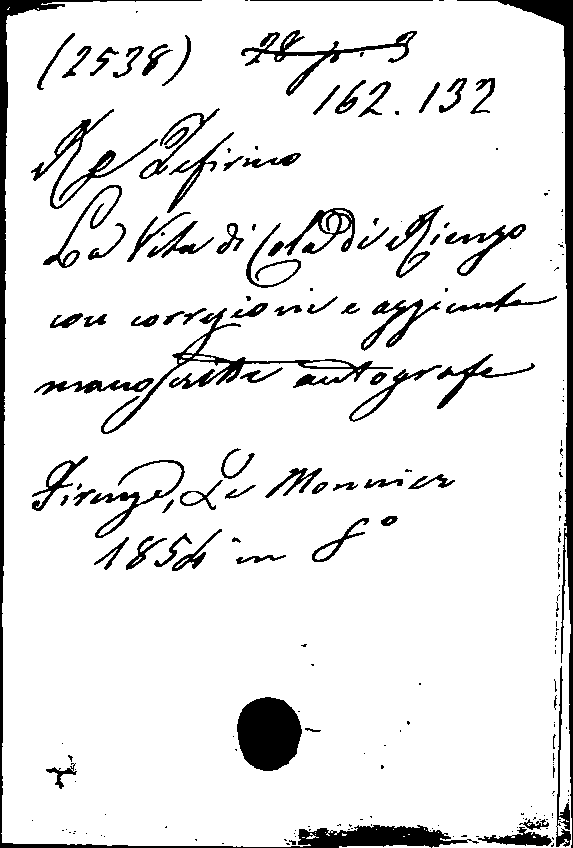 (2538) 28 p. 3
162.132
Re Zefirino
La Vita di Cola di Rienzo
con corregioni e aggiunte
manoscritte autografe
Firenze, Le Monnier
1854 in 8°